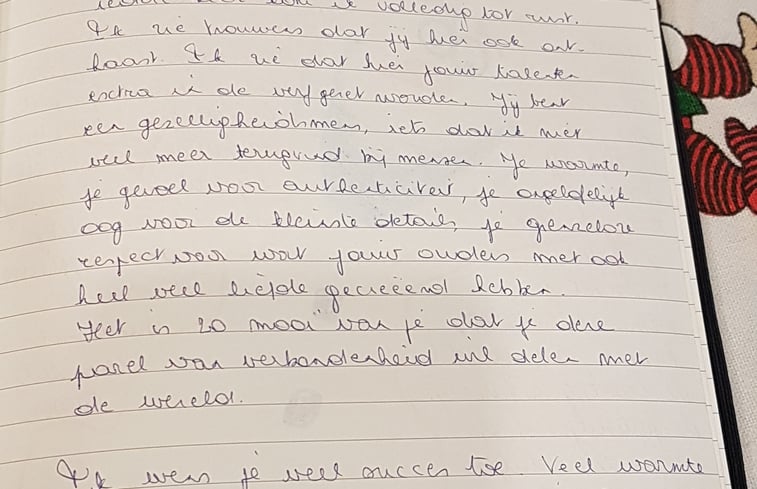 volledig tot rust.
Ik zie trouwens dat jij hier ook ont-
haast. Ik zie dat hier jouw talenten
extra in de verf gezet worden. Jij bent
een gezelligheidsmens, iets dat ik niet
veel meer terugvind bij mensen. Je warmte,
je gevoel voor authenticiteit, je ongelofelijk
oog voor de kleinste details, je grenzeloze
respect voor wat jouw ouders met ook
heel veel liefde gecreëerd hebben.
Het is zo mooi van je dat je deze
parel van verbondenheid wil delen met
de wereld.
Ik wens je veel succes toe. Veel warmte